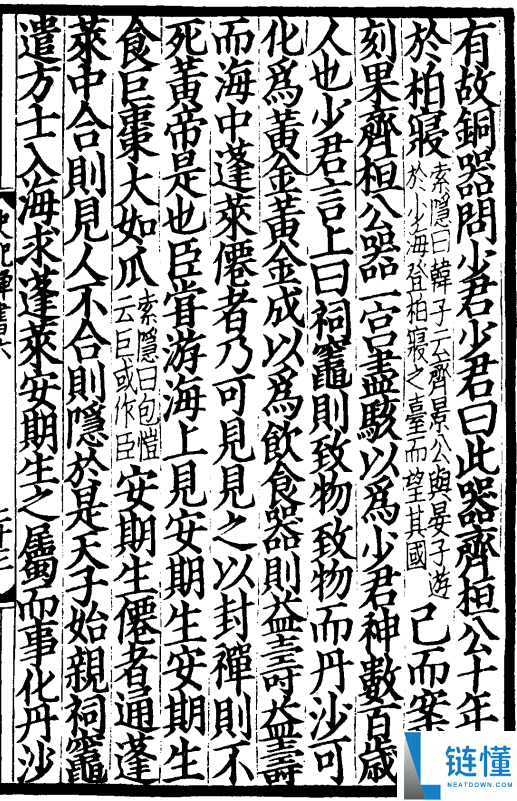 有故銅器問少君少君曰此器齊桓公十年
於柏寢索隱曰韓子云齊景公與晏子遊於少海登柏寢之臺而望其國已而案
刻果齊桓公器一宮盡駭以爲少君神數百歲
人也少君言上曰祠竈則致物致物而丹沙可
化爲黃金黃金成以爲飲食器則益壽益壽
而海中蓬萊僊者乃可見見之以封禪則不
死黃帝是也臣嘗游海上見安期生安期生
食巨棗大如瓜索隱曰包愷云巨或作臣安期生僊者通蓬
萊中合則見人不合則隱於是天子始親祠竈
遣方士入海求蓬萊安期生之屬而事化丹沙
链懂
NEATDOWN.COM